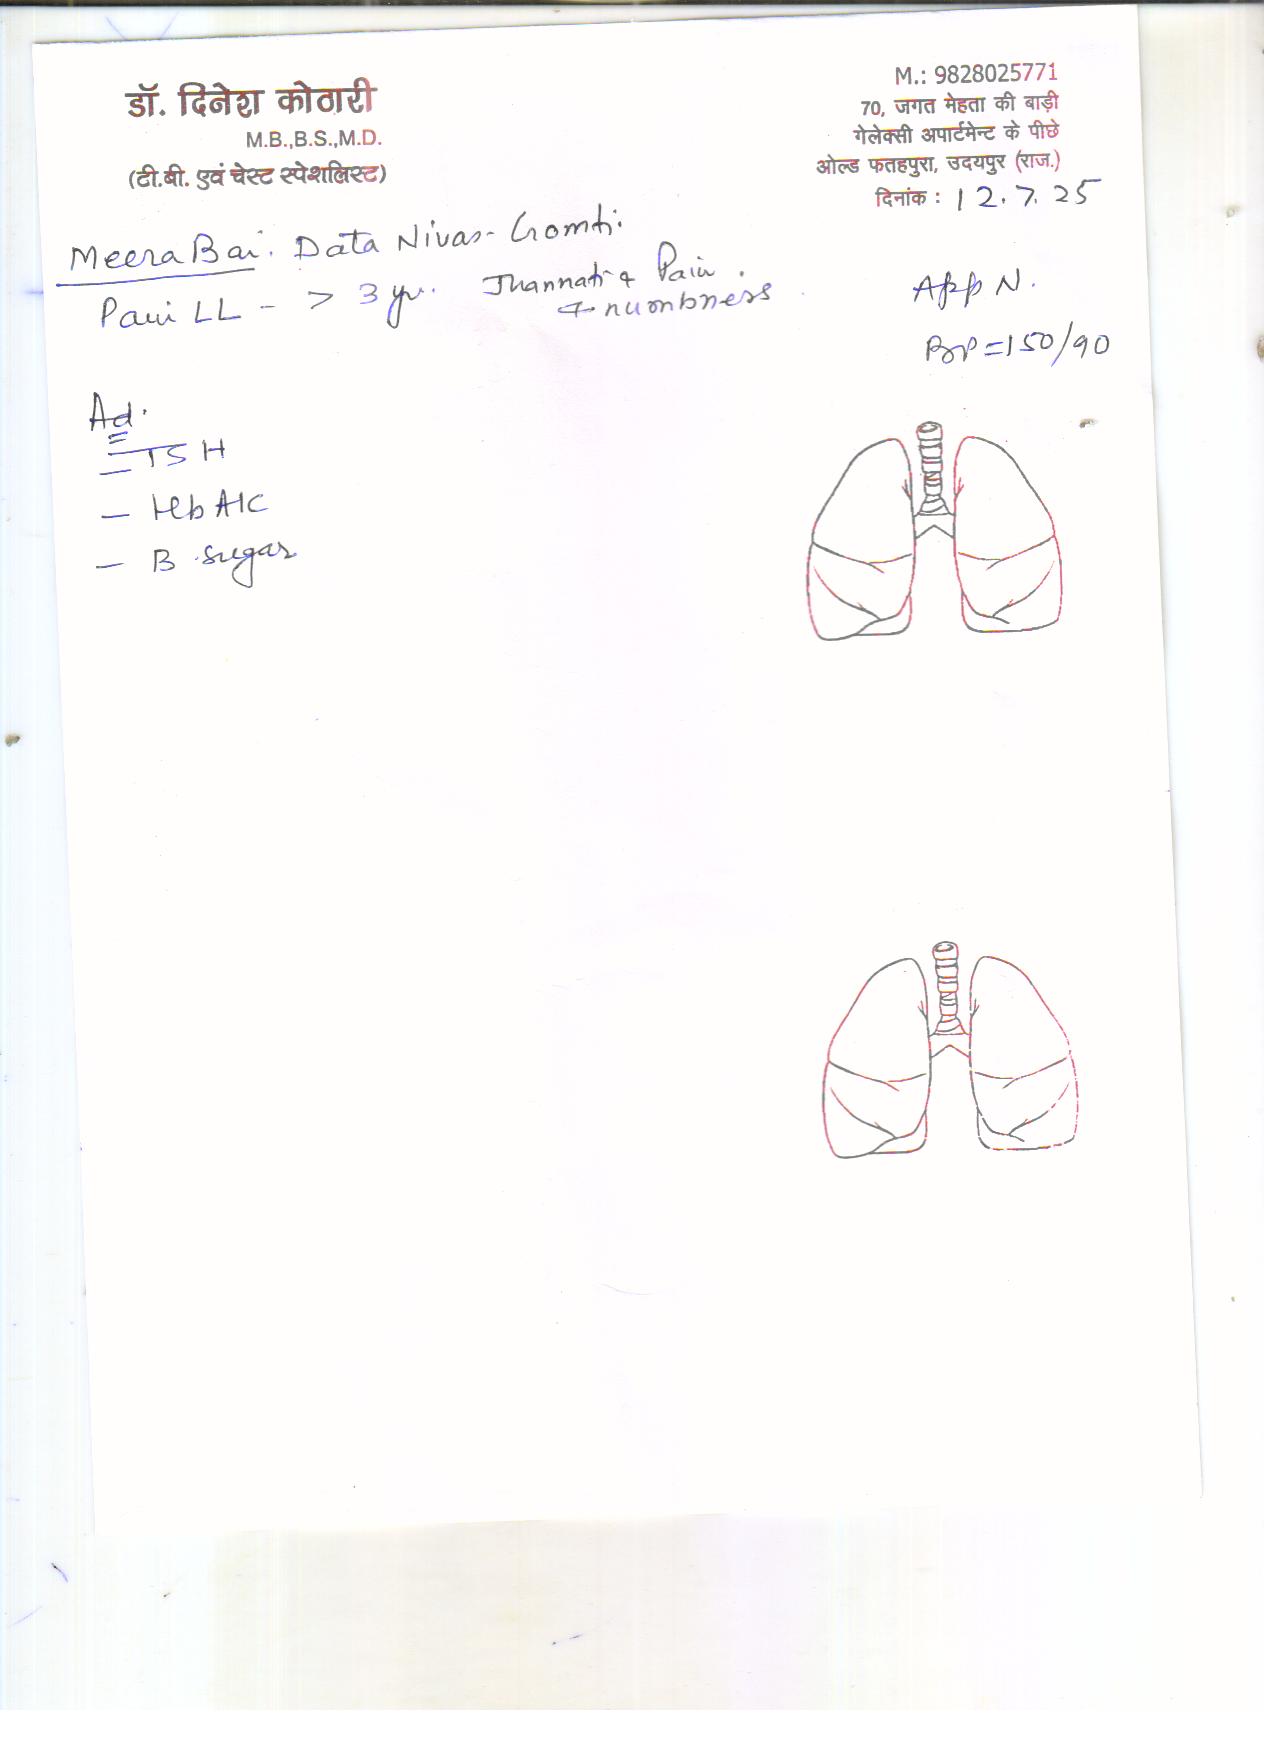 डॉ. दिनेश कोठारी
M.B.,B.S.,M.D.
(टी.बी. एवं चेस्ट स्पेशलिस्ट)
M.: 9828025771
70, जगत मेहता की बाड़ी
गेलेक्सी अपार्टमेन्ट के पीछे
ओल्ड फतहपुरा, उदयपुर (राज.)
दिनांक : 12.7.25
Meera Bai. Data Nivas- Gomti.
Pain LL - > 3 yr. Jhannati & Pain.
+ numbness
App N.
BP = 150/90
Ad.
- TSH
- HbA1C
- B. Sugar